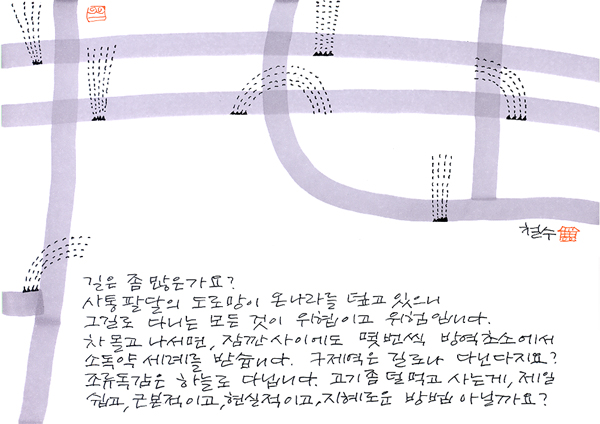 철수
길은 좀 많은가요?
사통팔달의 도로망이 온나라를 덮고 있으니
그길로 다니는 모든 것이 위협이고 위험입니다.
차 몰고 나서면, 잠깐사이에도 몇번씩 방역초소에서
소독약 세례를 받습니다. 구제역은 길로나 다닌다지요?
조류독감은 하늘로 다닙니다. 고기좀 덜먹고 사는게, 제일
쉽고, 근본적이고, 현실적이고, 지혜로운 방법 아닐까요?